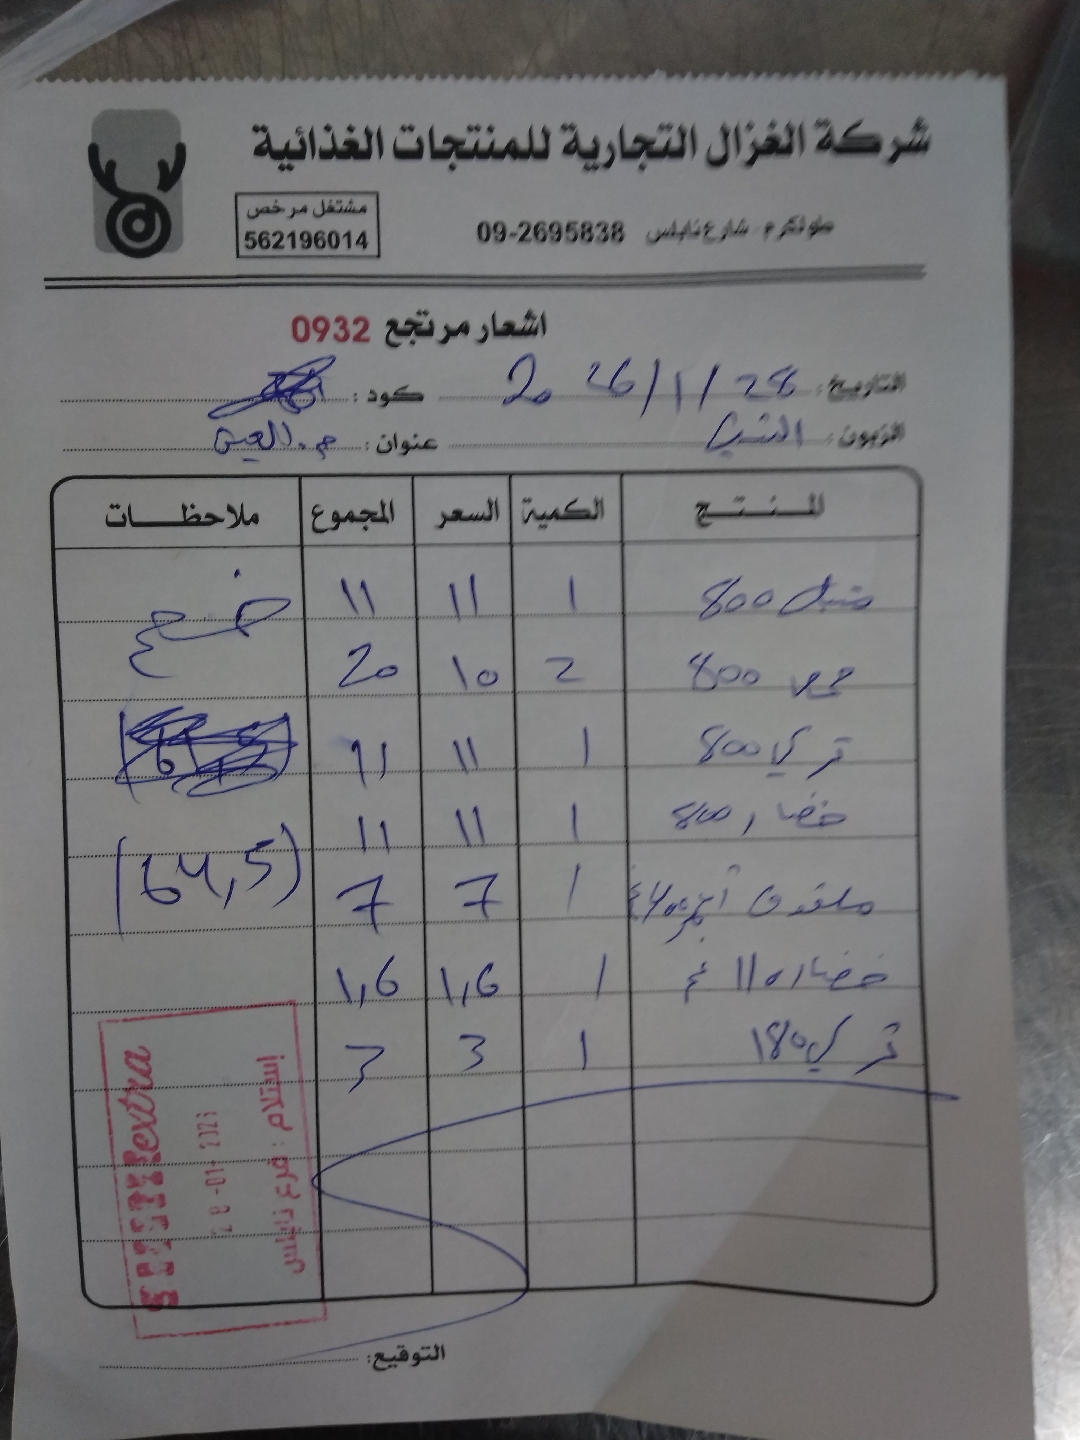 شركة الغزال التجارية للمنتجات الغذائية
طولكرم - شارع نابلس 09-2695838
مشتغل مرخص
562196014
اشعار مرتجع 0932
التاريخ: 28/1/2026 كود:
الزبون: عنوان:
المنتج الكمية السعر المجموع ملاحظات
800 1 11 11
حمص 800 2 10 20
تركي 800 1 11 11
خضار 800 1 11 11
1 7 7
(64,5)
خضار 110 غ 1 1,6 1,6
تركي 180 1 3 3
extra
إستلام : فرع نابلس
التوقيع: